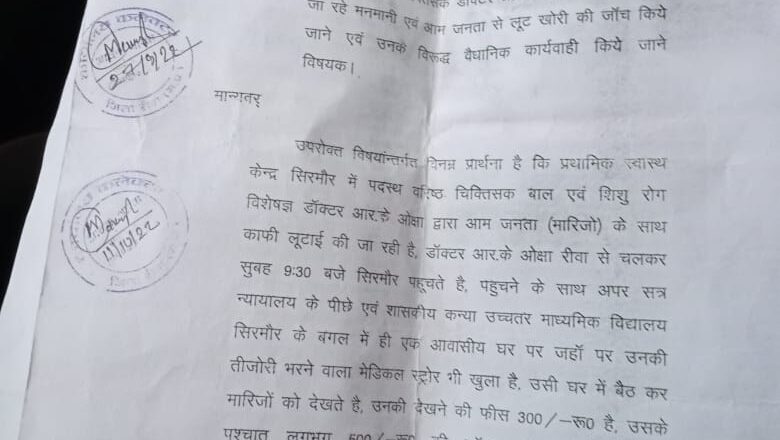 जा रहे मनमानी एवं आम जनता से लूट खोरी की जॉच किये
जाने एवं उनके विरूद्ध वैधानिक कार्यवाही किये जाने
विषयक।
मान्यतर्
उपरोक्त विषयांन्तर्गत विनम्र प्रार्थना है कि प्रथामिक स्वास्थ
केन्द्र सिरमौर में पदस्थ वरिष्ठ चिक्तिसक बाल एवं शिशु रोग
विशेषज्ञ डॉक्टर आर.के ओक्षा द्वारा आम जनता (मारिजो) के साथ
काफी लूटाई की जा रही है, डॉक्टर आर.के ओक्षा रीवा से चलकर
सुबह 9:30 बजे सिरमौर पहूचते है, पहुचने के साथ अपर सत्र
न्यायालय के पीछे एवं शासकीय कन्या उच्चतर माध्यमिक विद्यालय
सिरमौर के बगल में ही एक आवासीय घर पर जहॉ पर उनकी
तीजोरी भरने वाला मेडिकल स्ट्रोर भी खुला है, उसी घर में बैठ कर
मारिजों को देखते है, उनकी देखने की फीस 300/-रू0 है, उसके
पश्चात लगभग 500/-रू0
11/10/22